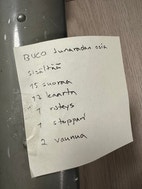 BRIO Junaradan osia
sisältää
15 suoraa
17 kaarta
1 risteys
1 stoppari
2 vaunua